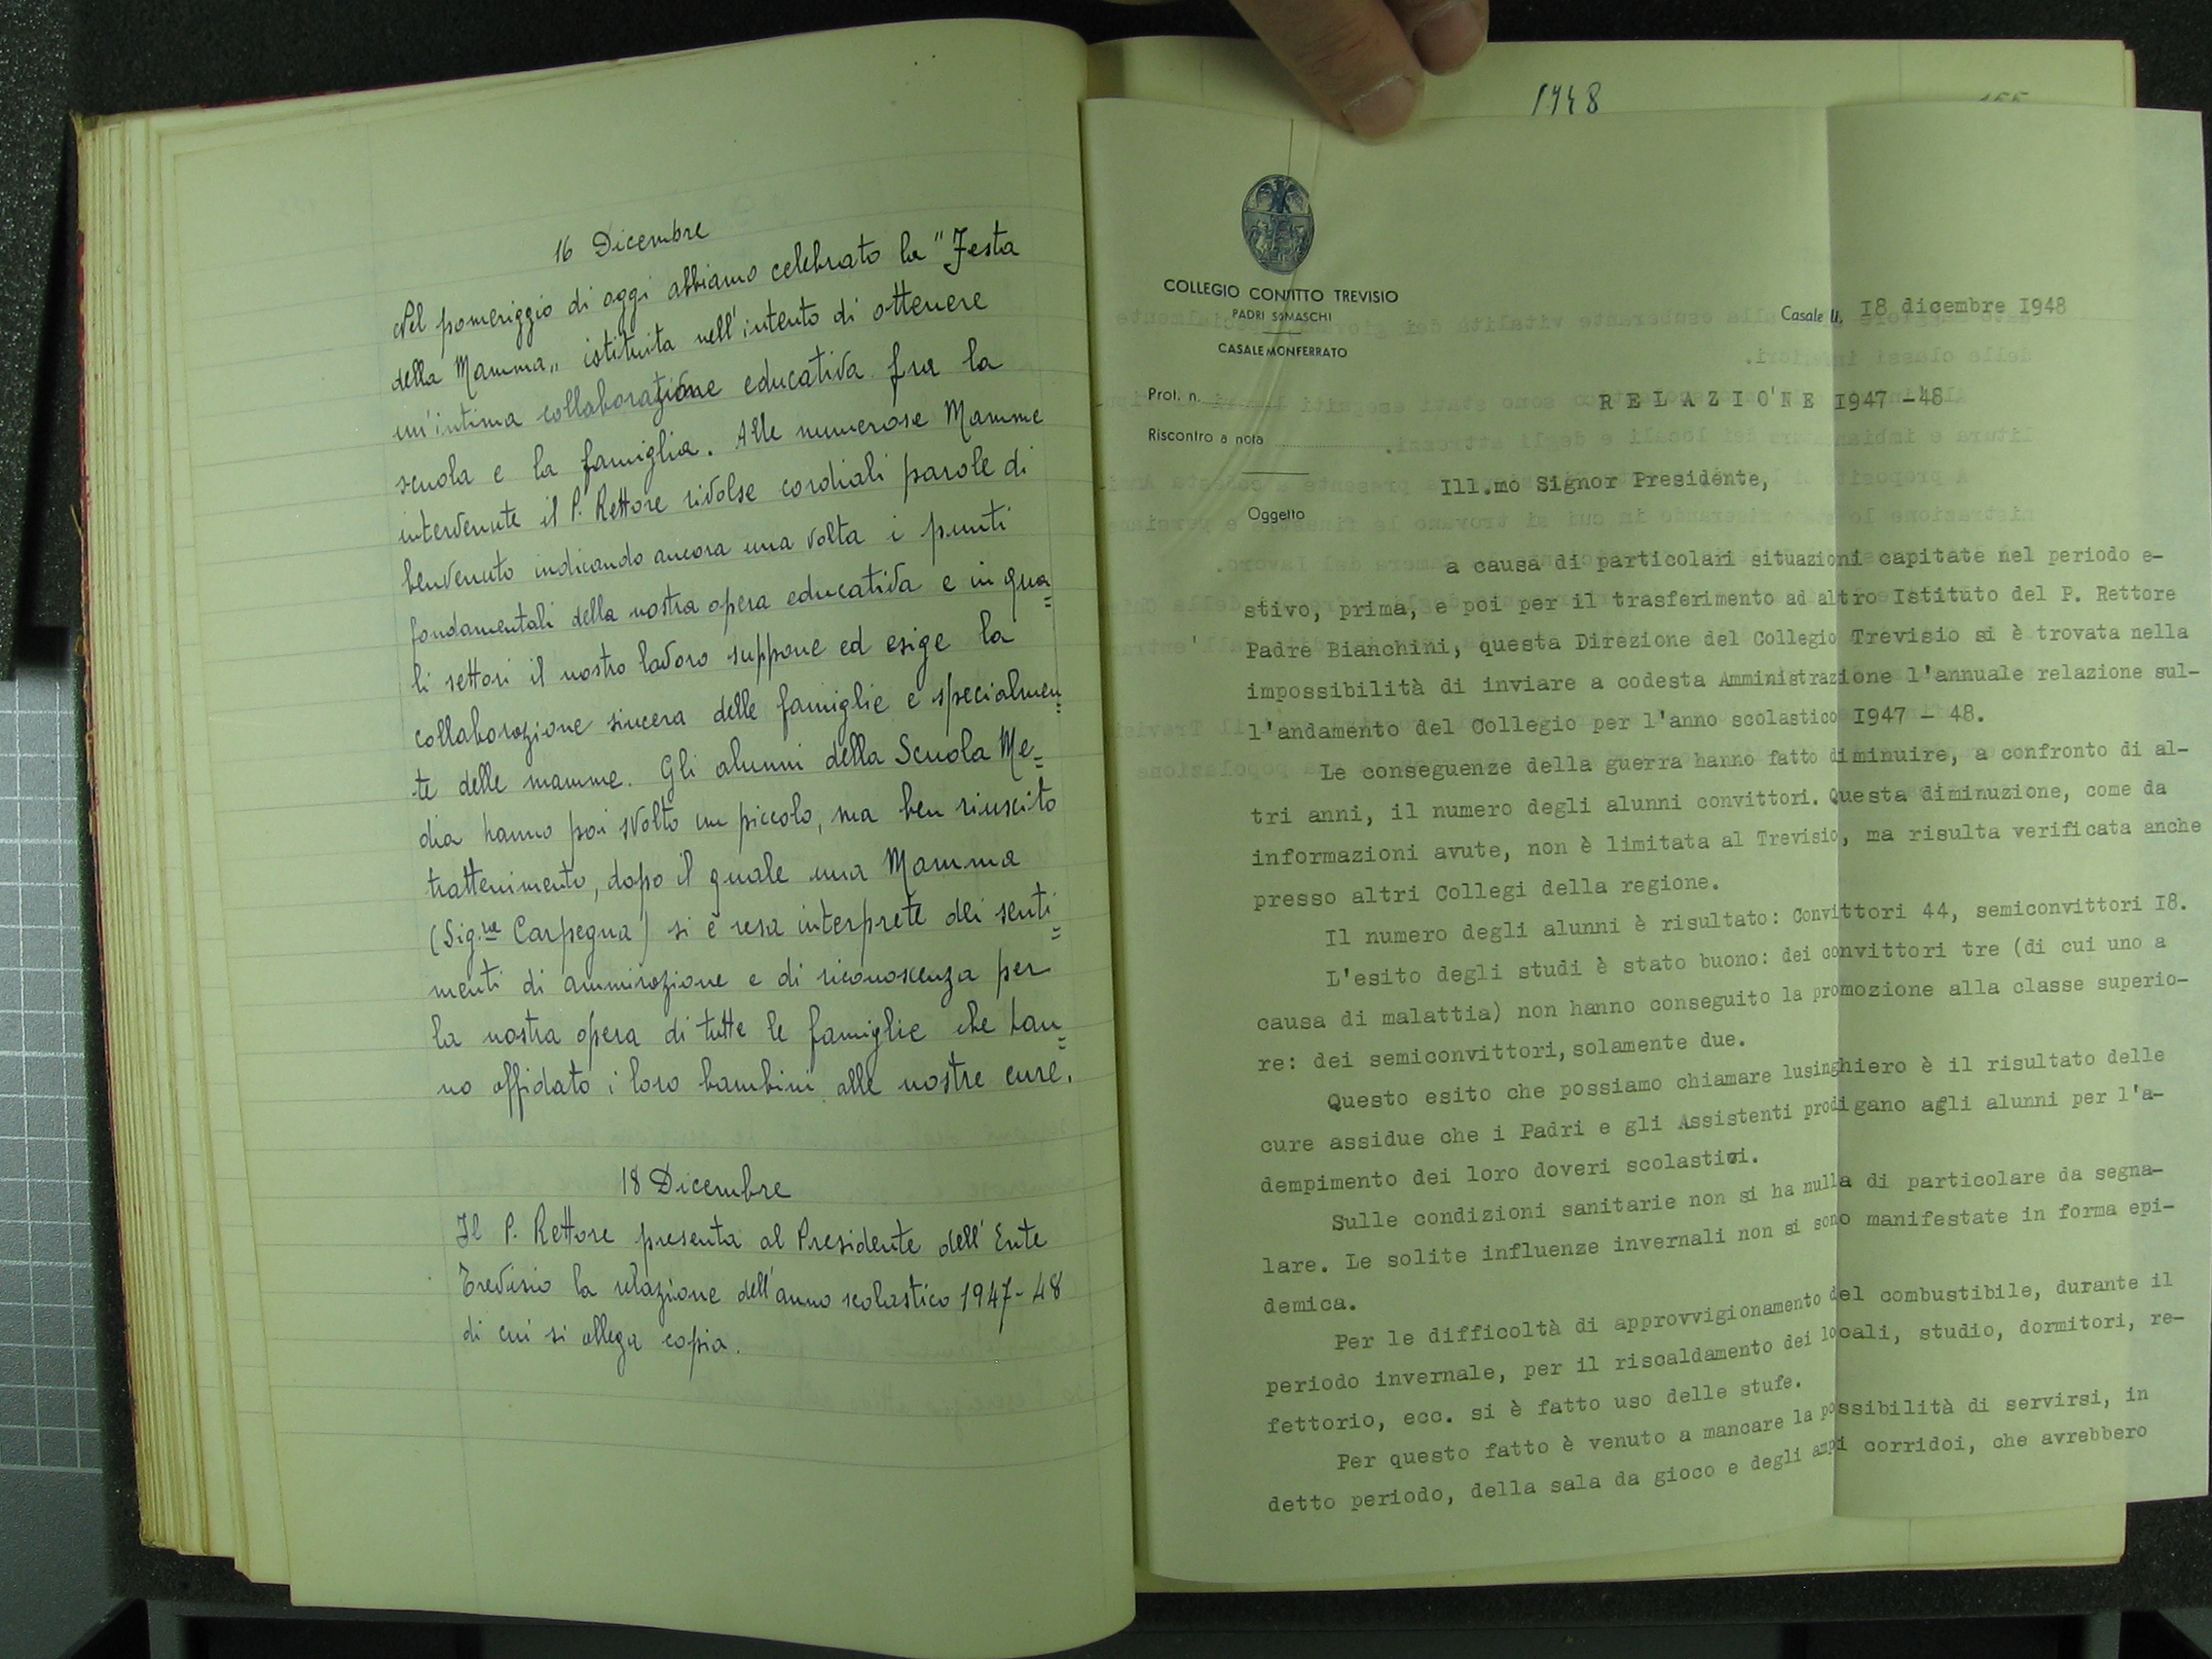 16 Dicembre
Nel pomeriggio di oggi abbiamo celebrato la "Festa
della Mamma„ istituita nell'intento di ottenere
un'intima collaborazione educativa fra la
scuola e la famiglia. Alle numerose Mamme
intervenute il P. Rettore rivolse cordiali parole di
benvenuto indicando ancora una volta i punti
fondamentali della nostra opera educativa e in qua=
li settori il nostro lavoro suppone ed esige la
collaborazione sincera delle famiglie e specialmen=
te delle mamme. Gli alunni della Scuola Me=
dia hanno poi svolto un piccolo, ma ben riuscito
trattenimento, dopo il quale una Mamma
(Sig.ra Carpegna) si è resa interprete dei senti=
menti di ammirazione e di riconoscenza per
la nostra opera di tutte le famiglie che han=
no affidato i loro bambini alle nostre cure.
18 Dicembre
Il P. Rettore presenta al Presidente dell'Ente
Trevisio la relazione dell'anno scolastico 1947-48
di cui si allega copia.
1948
COLLEGIO CONVITTO TREVISIO
PADRI SOMASCHI
CASALE MONFERRATO
Casale li, I8 dicembre I948
Prot. n.
R E L A Z I O N E I947 -48
Riscontro a nota
Ill.mo Signor Presidente,
Oggetto
a causa di particolari situazioni capitate nel periodo e-
stivo, prima, e poi per il trasferimento ad altro Istituto del P. Rettore
Padre Bianchini, questa Direzione del Collegio Trevisio si è trovata nella
impossibilità di inviare a codesta Amministrazione l'annuale relazione sul-
l'andamento del Collegio per l'anno scolastico I947 - 48.
Le conseguenze della guerra hanno fatto diminuire, a confronto di al-
tri anni, il numero degli alunni convittori. Questa diminuzione, come da
informazioni avute, non è limitata al Trevisio, ma risulta verificata anche
presso altri Collegi della regione.
Il numero degli alunni è risultato: Convittori 44, semiconvittori I8.
L'esito degli studi è stato buono: dei convittori tre (di cui uno a
causa di malattia) non hanno conseguito la promozione alla classe superio-
re: dei semiconvittori, solamente due.
Questo esito che possiamo chiamare lusinghiero è il risultato delle
cure assidue che i Padri e gli Assistenti prodigano agli alunni per l'a-
dempimento dei loro doveri scolastici.
Sulle condizioni sanitarie non si ha nulla di particolare da segna-
lare. Le solite influenze invernali non si sono manifestate in forma epi-
demica.
Per le difficoltà di approvvigionamento del combustibile, durante il
periodo invernale, per il riscaldamento dei locali, studio, dormitori, re-
fettorio, ecc. si è fatto uso delle stufe.
Per questo fatto è venuto a mancare la possibilità di servirsi, in
detto periodo, della sala da gioco e degli ampi corridoi, che avrebbero